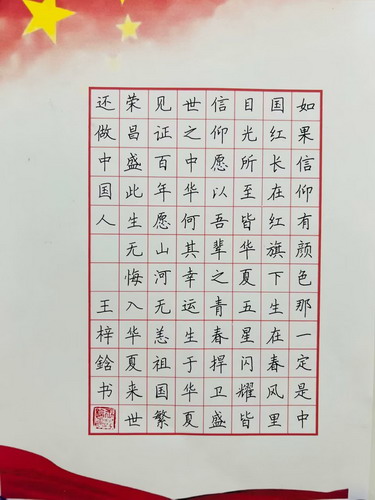 如果信仰有颜色那一定是中
国红长在红旗下生在春风里
目光所至皆华夏五星闪耀皆
信仰愿以吾辈之青春捍卫盛
世之中华何其幸运生于华夏
见证百年愿山河无恙祖国繁
荣昌盛此生无悔入华夏来世
还做中国人 王梓鋡书